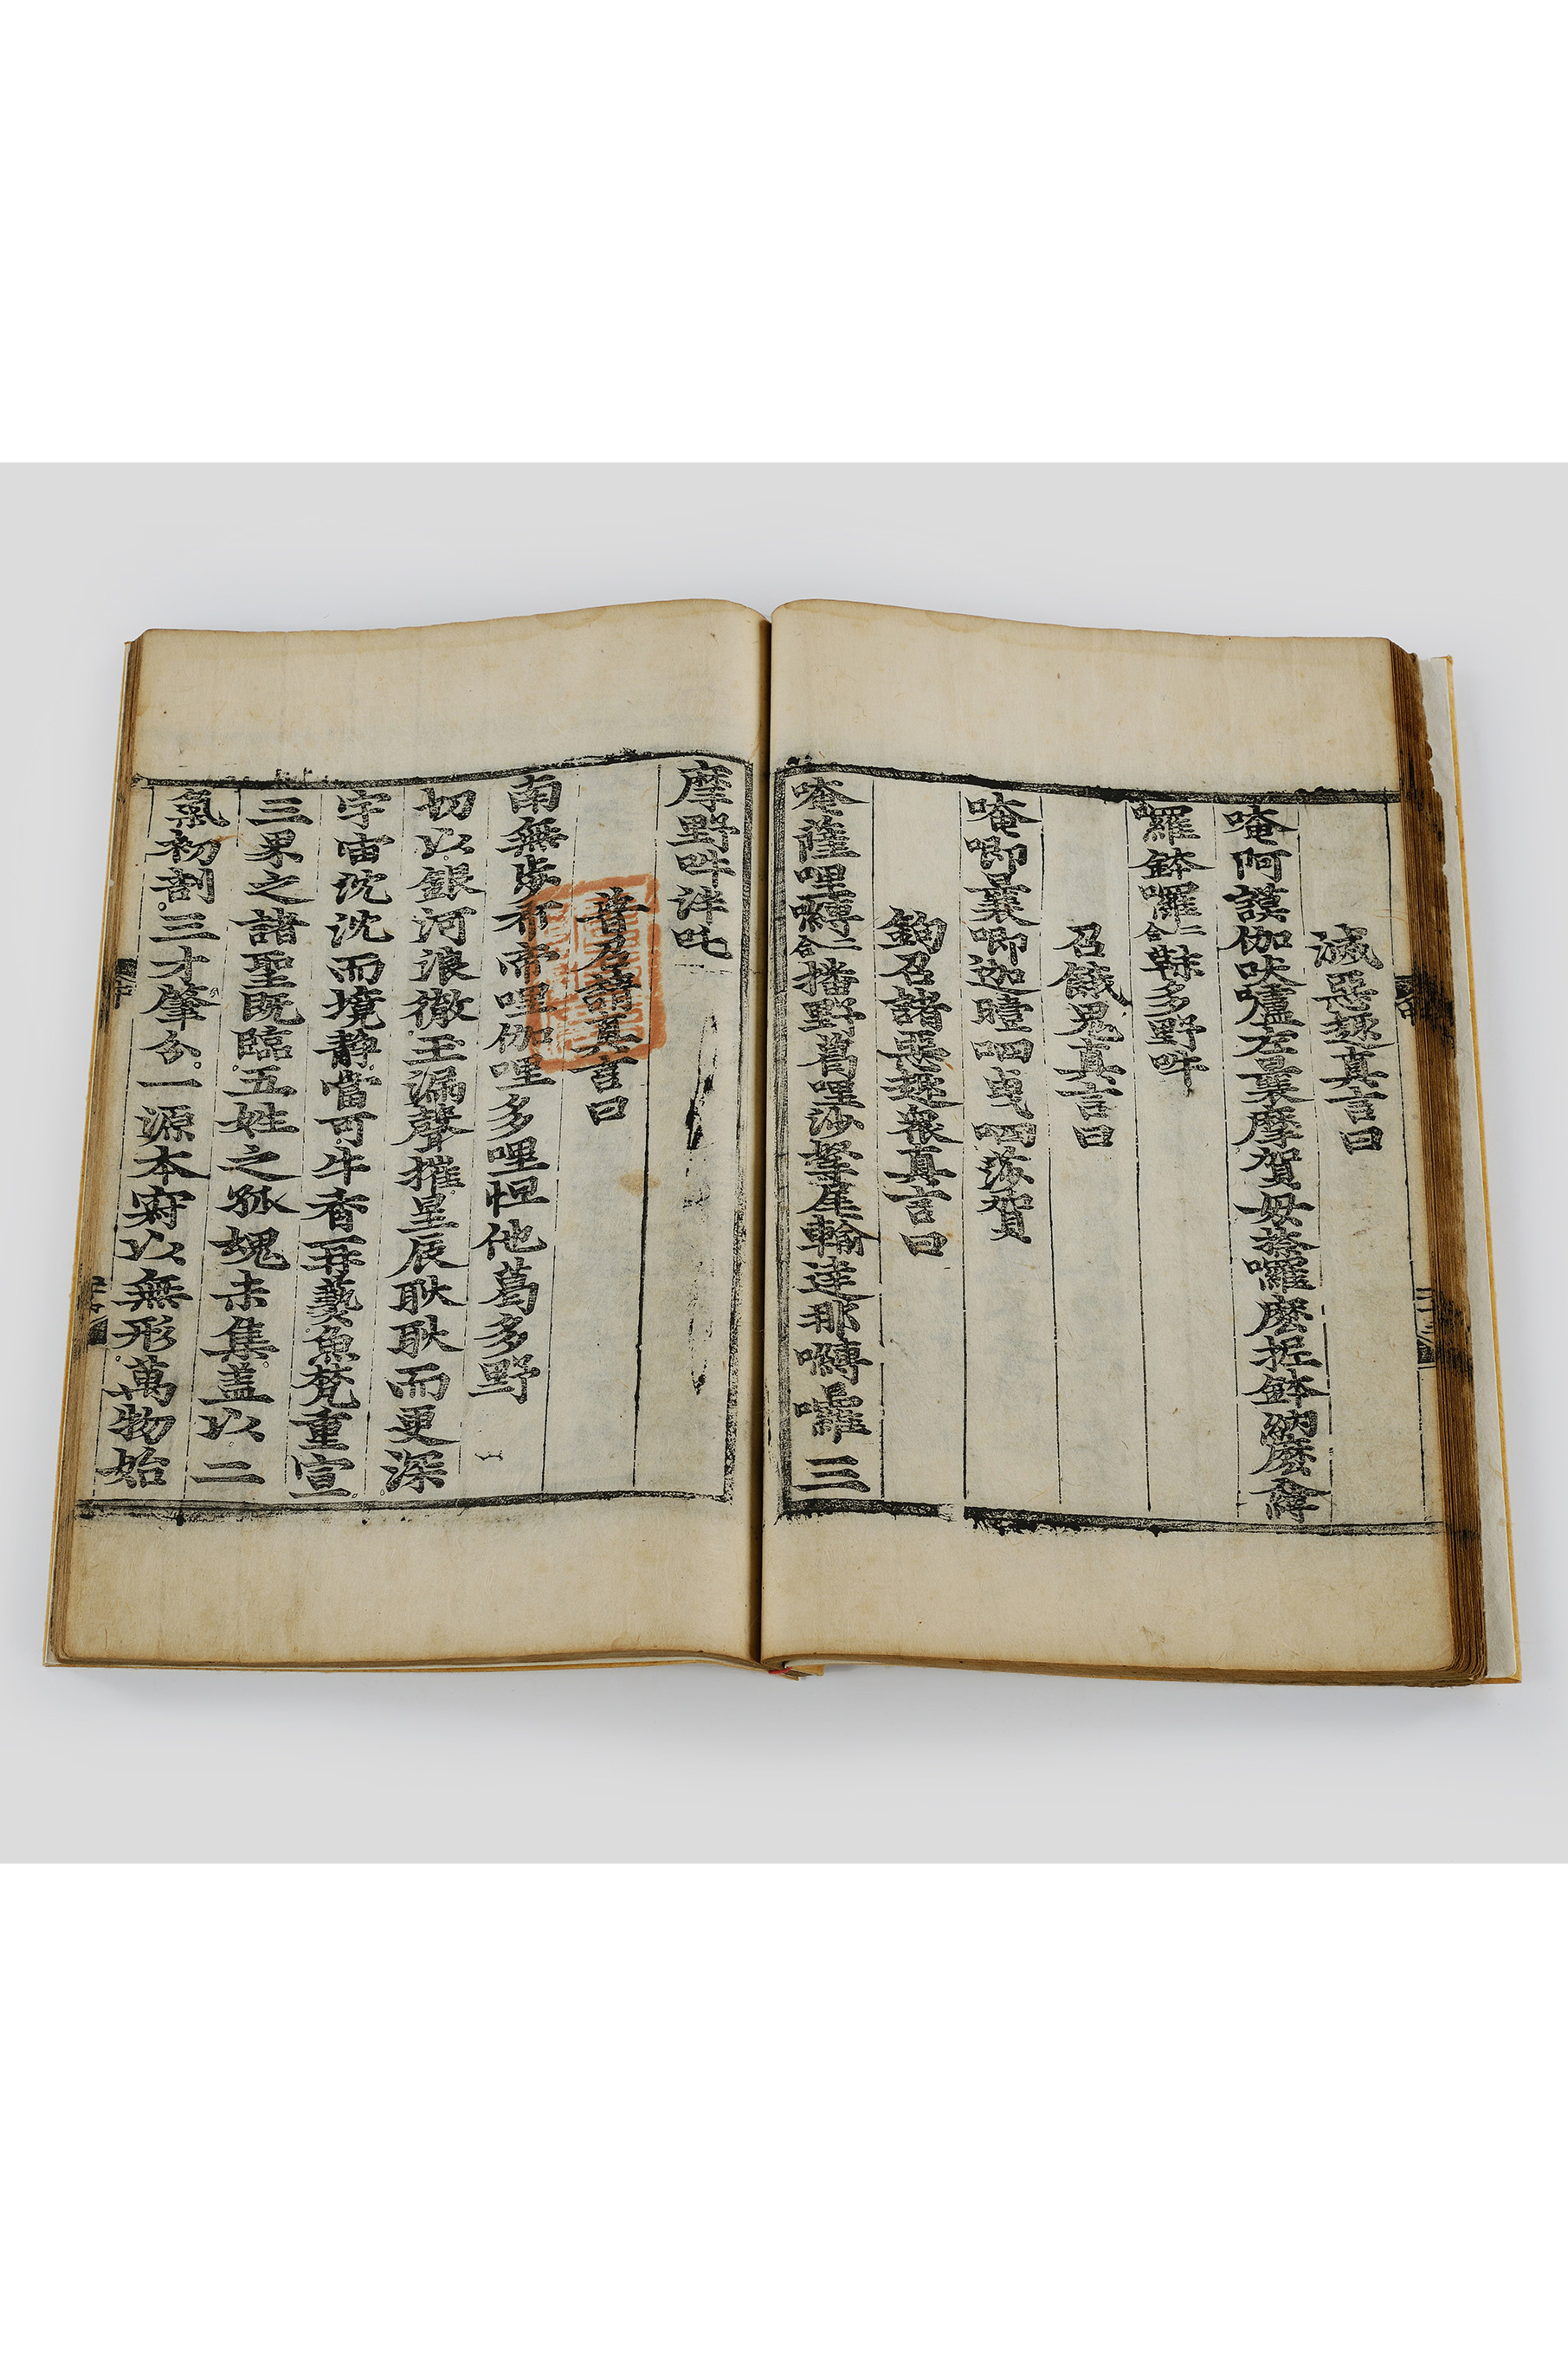 滅惡趣真言曰
唵阿謨伽吠嚧左曩摩賀母捺囉麽抳鉢納麽
囉鉢囉二合韈多野吽
召餓鬼真言曰
唵唧曩唧迦曀呬曵呬莎賀
鉤召諸惡趣衆真言曰
唵薩哩嚩二合播野葛哩沙拏尾輸達那嚩囉三
摩野吽泮吒
普召諸真言曰
南無步布帝哩伽哩多哩怛他葛多野
切以銀河浪徹玉漏聲摧星辰耿耿而更深
宇宙沈沈而境静當可牛香再爇魚梵重宣
三果之諸聖既臨五姓之孤魂未集盖以二
氣初剖三才肇分一源本寂以無形萬物始